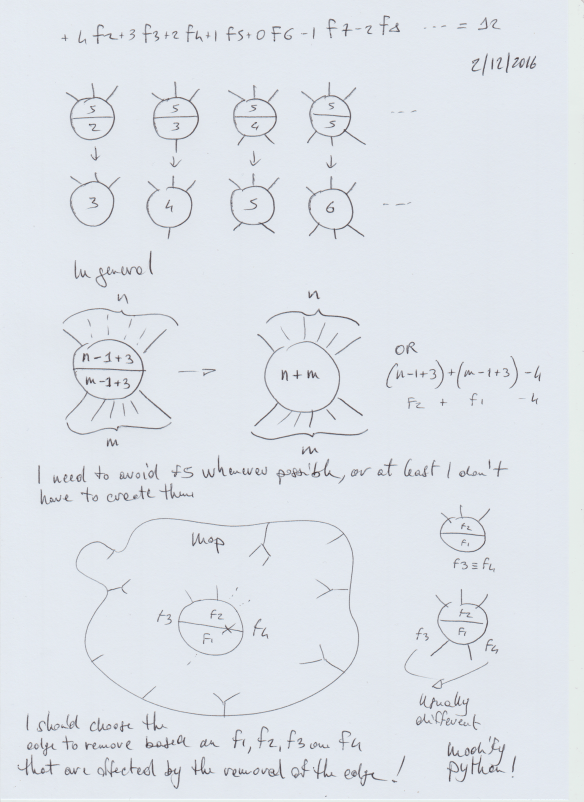 + 4 f2 + 3 f3 + 2 f4 + 1 f5 + 0 f6 - 1 f7 - 2 f8 ... = 12
2/12/2016
5 5 5 5
2 3 4 5 ---
3 4 5 6 ---
In general
n n
n-1+3
m-1+3
n+m
m m
OR
(n-1+3)+(m-1+3) -4
F2 + f1 -4
I need to avoid f5 whenever possible, or at least I don't
have to create them
map
f3 F2 F1 f4
F2
F1
f3 ≡ f4
F2
F1
f3 f4
Usually
different
I should choose the
edge to remove based on f1, f2, f3 f4
that are affected by the removal of the edge!
modify
python!